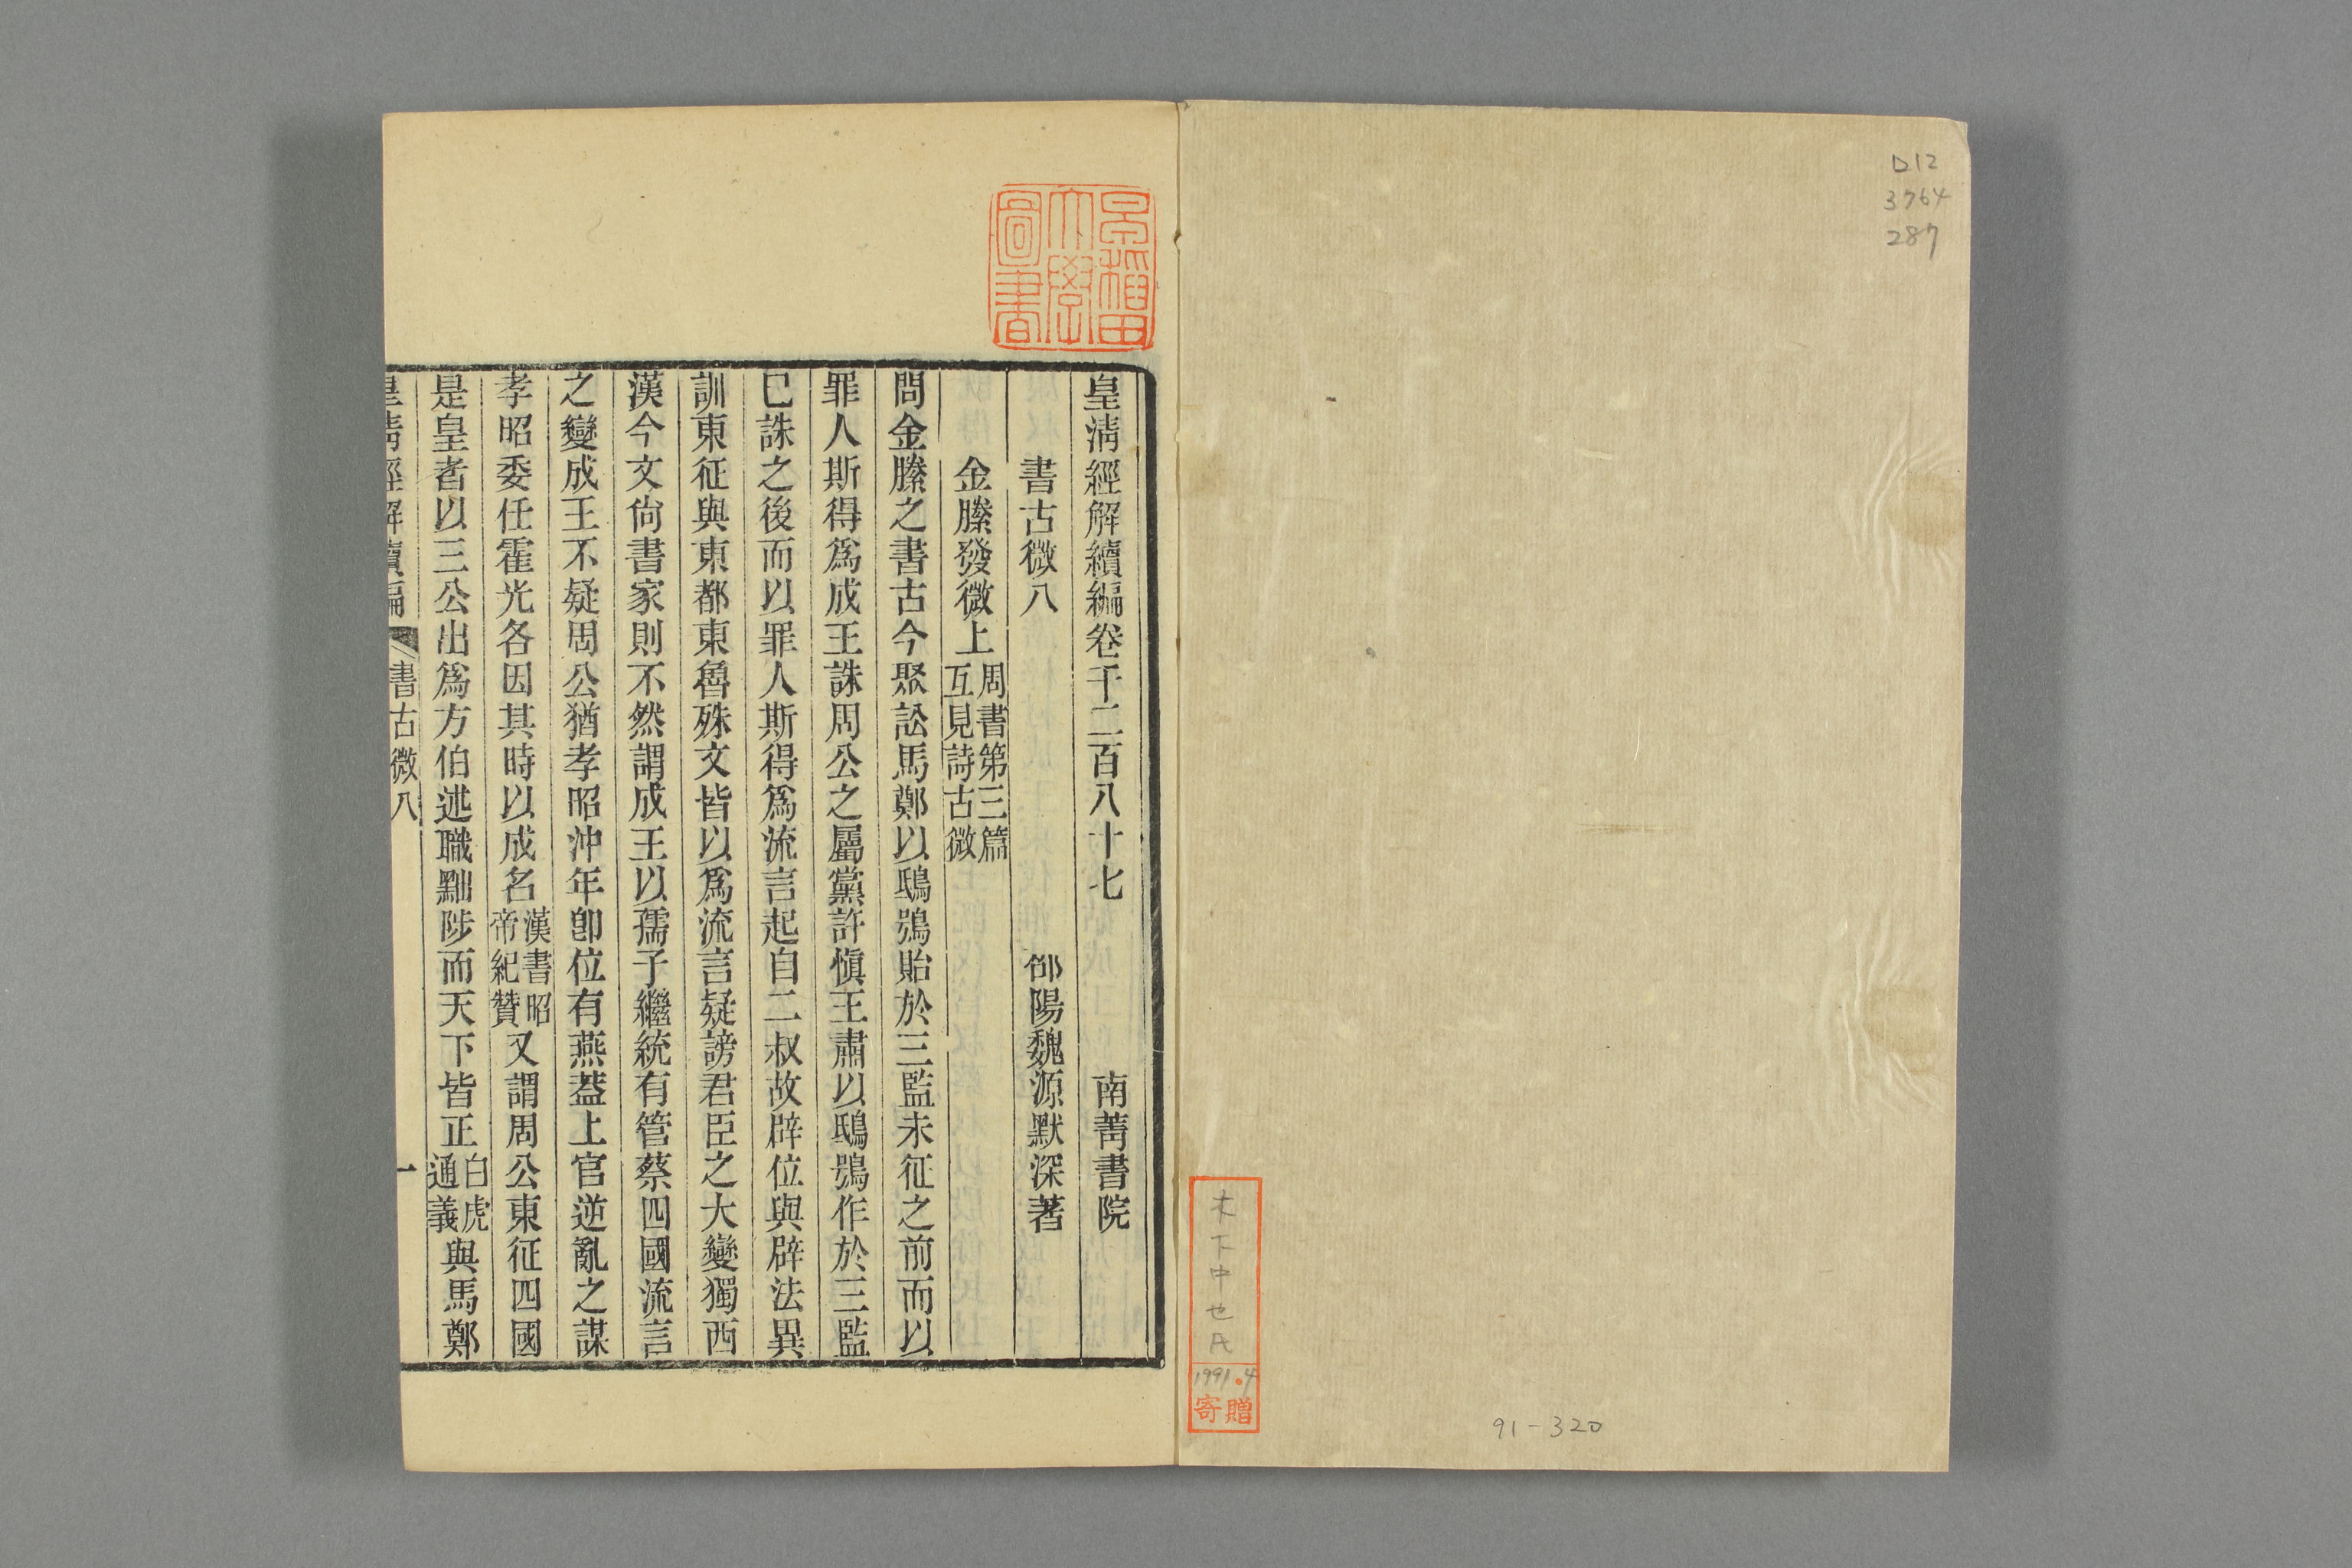 D12
3764
287
木下中也氏
1991.4
寄贈
91-320
早稲田
大學
圖書
皇清經解續編卷千二百八十七 南菁書院
書古微八 邵陽魏源默深著
金縢發微上 周書第三篇
互見詩古微
問金縢之書古今聚訟馬鄭以鴟鴞貽於三監未征之前而以
罪人斯得爲成王誅周公之屬黨許愼王肅以鴟鴞作於三監
已誅之後而以罪人斯得爲流言起自二叔故辟位與辟法異
訓東征與東都東魯殊文皆以爲流言疑謗君臣之大變獨西
漢今文尙書家則不然謂成王以孺子繼統有管蔡四國流言
之變成王不疑周公猶孝昭沖年卽位有燕葢上官逆亂之謀
孝昭委任霍光各因其時以成名 漢書昭
帝紀贊 又謂周公東征四國
是皇者以三公出爲方伯述職黜陟而天下皆正 白虎
通義 與馬鄭
皇清經解續編 書古微八 一